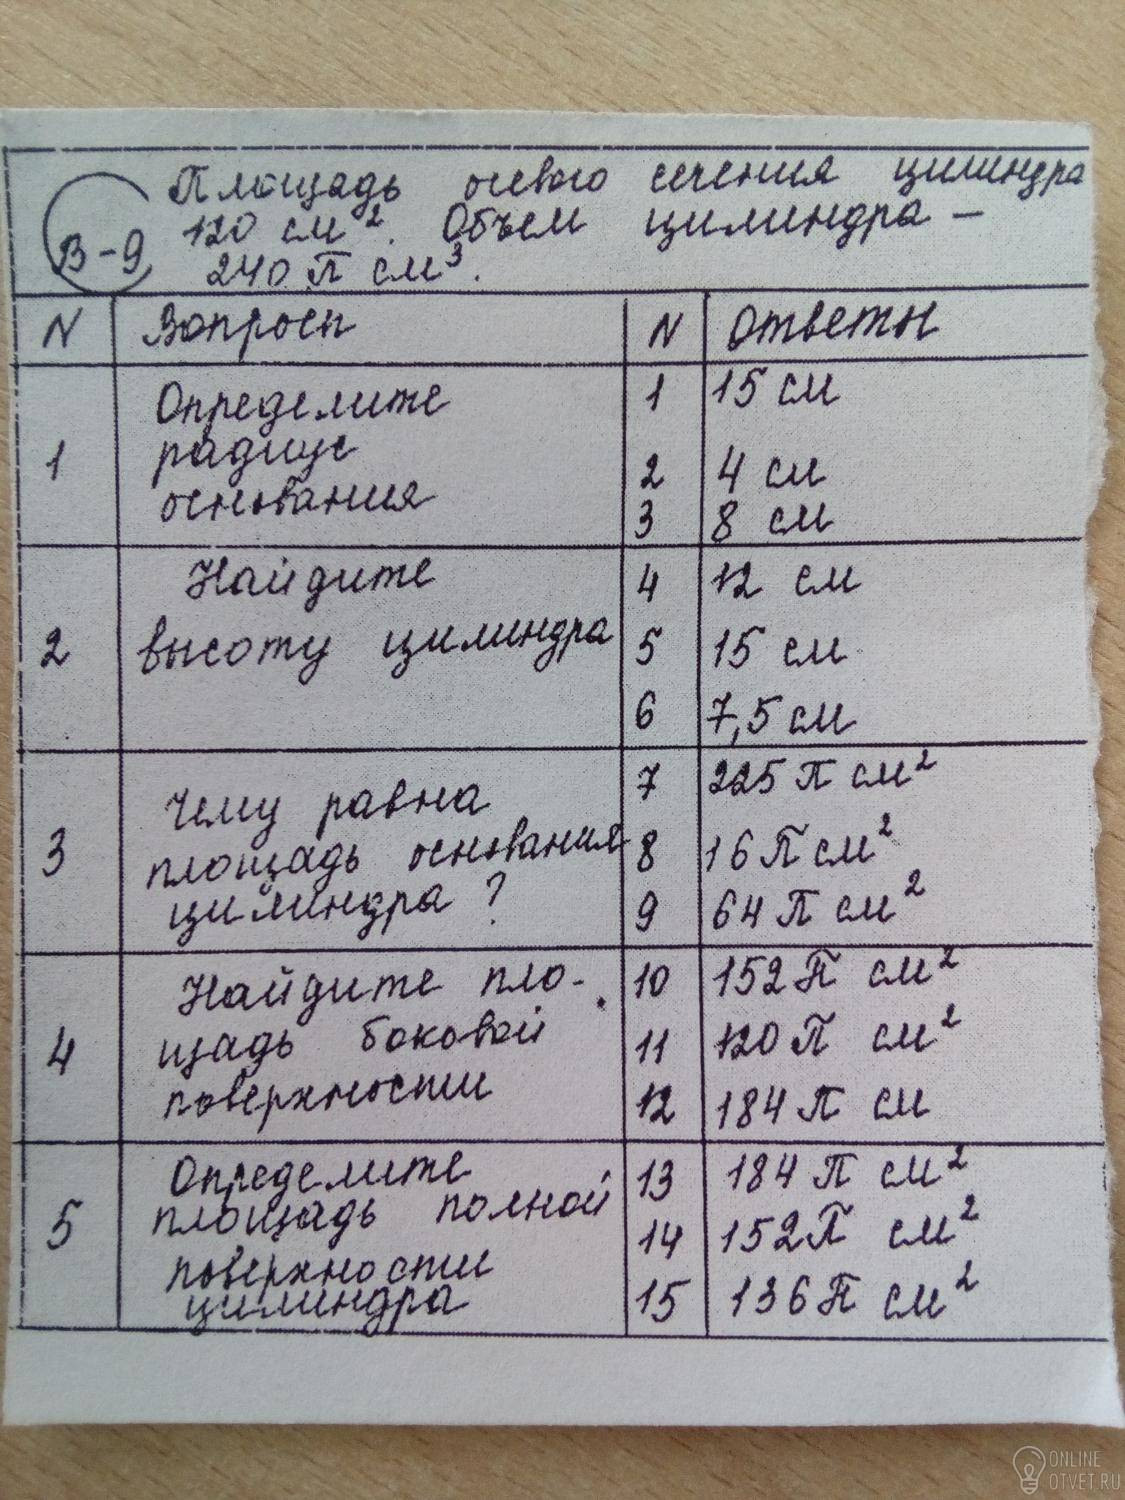 В-9
Площадь осевого сечения цилиндра
120 см². Объем цилиндра –
240 П см³.
N Вопросы N Ответы
1 Определите радиус основания
1 15 см
2 4 см
3 8 см
2 Найдите высоту цилиндра
4 12 см
5 15 см
6 7,5 см
3 Чему равна площадь основания цилиндра?
7 225 П см²
8 16 П см²
9 64 П см²
4 Найдите пло-
щадь боковой
поверхности
10 152 П см²
11 120 П см²
12 184 П см
5 Определите
площадь полной
поверхности
цилиндра
13 184 П см²
14 152 П см²
15 136 П см²
ONLINE
OTVET.RU